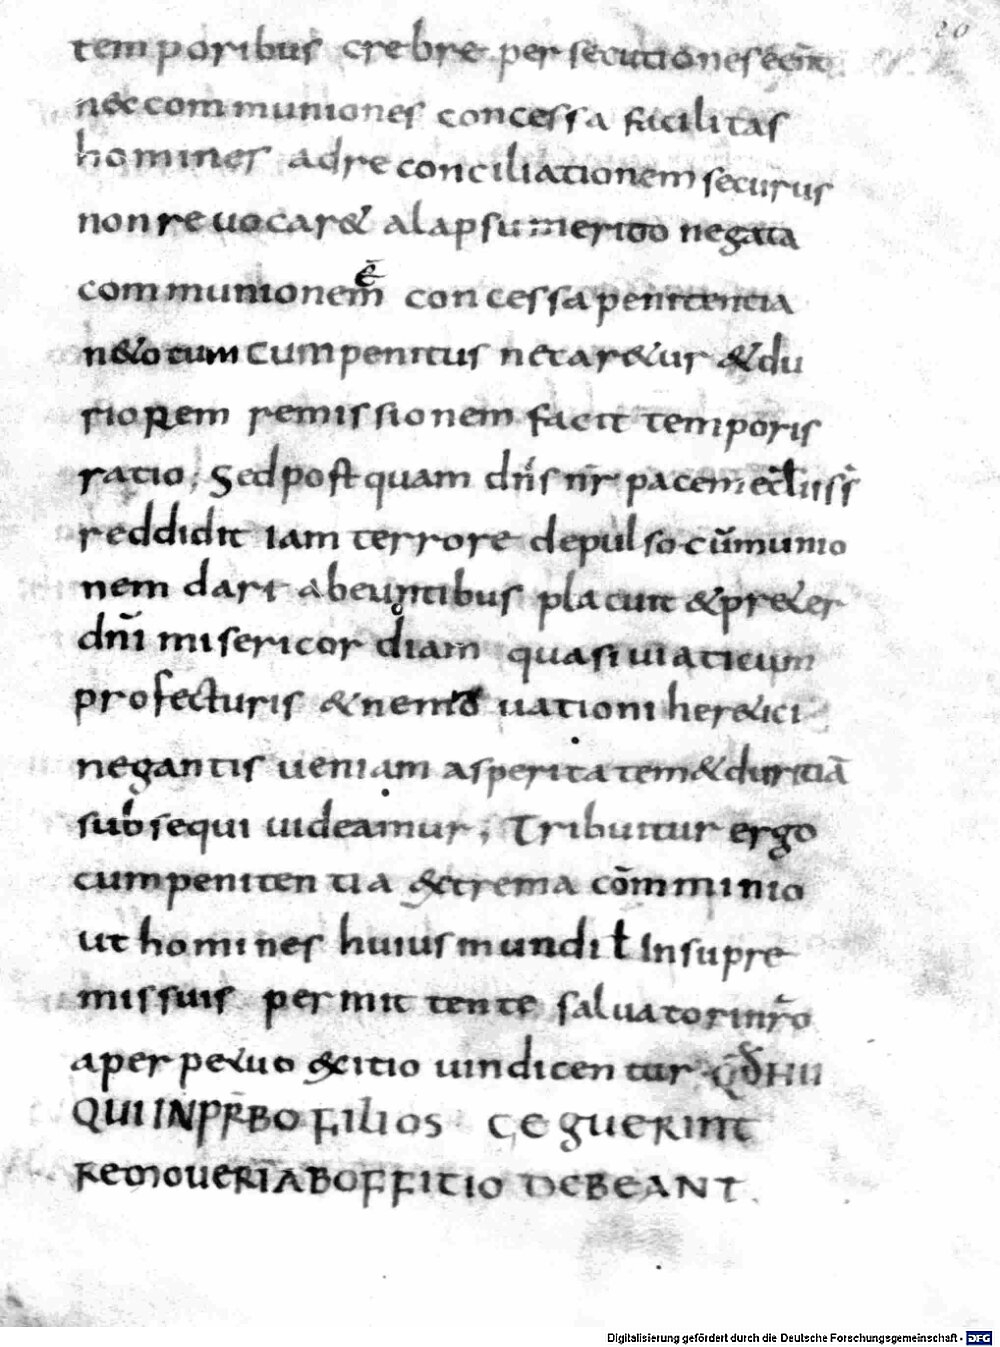 20
temporibus crebre persecutiones
nec communiones concessa facilitas
homines ad reconciliationem securus
non reuocar& alapsu merito negata
communionem concessa penitentia
n& totum cum penitus netar&ur &du
riorem remissionem facit temporis
ratio; Sed postquam dñs nr̄ pacem
reddidit iam terrore depulso cūmunio
nem dari abeuntibus placuit &pr&er
dnī misericordiam quasi uiaticum
profecturis &nem uationi her&ici
negantis ueniam asperitatem &duritiā
subsequi uideamur; Tribuitur ergo
cum penitentia &trema cōmminio
ut homines huiusmundi ł Insupre
missuis permittente saluatori nr̄o
aperp&uo &citio uindicentur
QUI IN PR̄BO FILIOS CEGUERINT
REMOUERI AB OFFITIO DEBEANT.
Digitalisierung gefördert durch die Deutsche Forschungsgemeinschaft - DFG